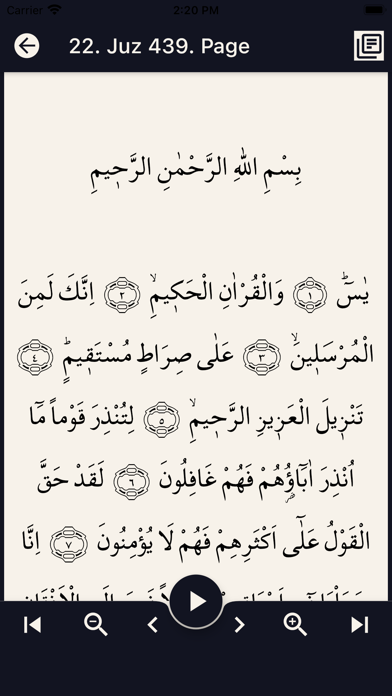 Carrier 2:20 PM
22. Juz 439. Page
بِسْمِ اللهِ الرَّحْمٰنِ الرَّح۪يمِ
يٰسٓۜ ﴿١﴾ وَالْقُرْاٰنِ الْحَك۪يمِۙ ﴿٢﴾ اِنَّكَ لَمِنَ
الْمُرْسَل۪ينَۙ ﴿٣﴾ عَلٰى صِرَاطٍ مُسْتَق۪يمٍۜ ﴿٤﴾
تَنْز۪يلَ الْعَز۪يزِ الرَّح۪يمِۙ ﴿٥﴾ لِتُنْذِرَ قَوْماً مَٓا
اُنْذِرَ اٰبَٓاؤُ۬هُمْ فَهُمْ غَافِلُونَ ﴿٦﴾ لَقَدْ حَقَّ
الْقَوْلُ عَلٰٓى اَكْثَرِهِمْ فَهُمْ لَا يُؤْمِنُونَ ﴿٧﴾ اِنَّا